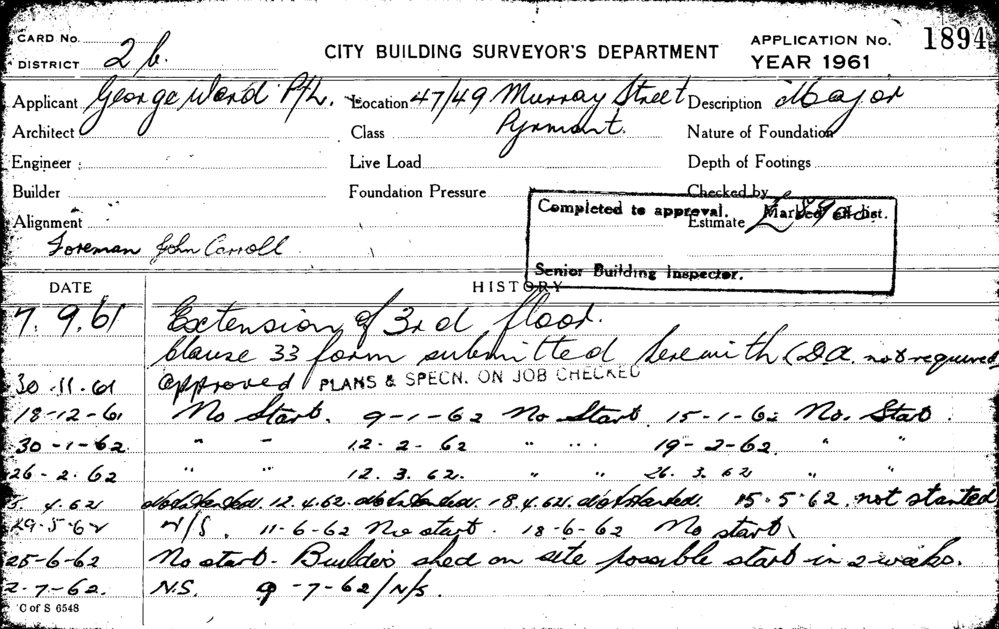 CARD No.
DISTRICT 2 b.
CITY BUILDING SURVEYOR'S DEPARTMENT
APPLICATION No. 1894
YEAR 1961
Applicant George Ward P/L. Location 47/49 Murray Street Description Major
Architect Class Pyrmont. Nature of Foundation
Engineer Live Load Depth of Footings
Builder Foundation Pressure Checked by
Completed to approval. Marked off list.
Alignment Estimate £
Foreman John Carroll
Senior Building Inspector.
DATE HISTORY
7.9.61 Extension of 3rd floor.
Clause 33 form submitted herewith (DA. not required
30.11.61 Approved PLANS & SPECN. ON JOB CHECKED
18-12-61 No Start. 9-1-62 No Start. 15-1-62 No. Start.
30-1-62. " " 12-2-62 " " 19-2-62. " "
26.2.62 " " 12.3.62. " " 26.3.62 " "
5.4.62 not started. 12.4.62. not started. 18.4.62. not started. 15.5.62. not started
29.5.62 N/S. 11-6-62 No start. 18-6-62 No start.
25-6-62 No start. Builders shed on site possible start in 2 weeks.
2-7-62. N.S. 9-7-62/N/S.
C of S 6548